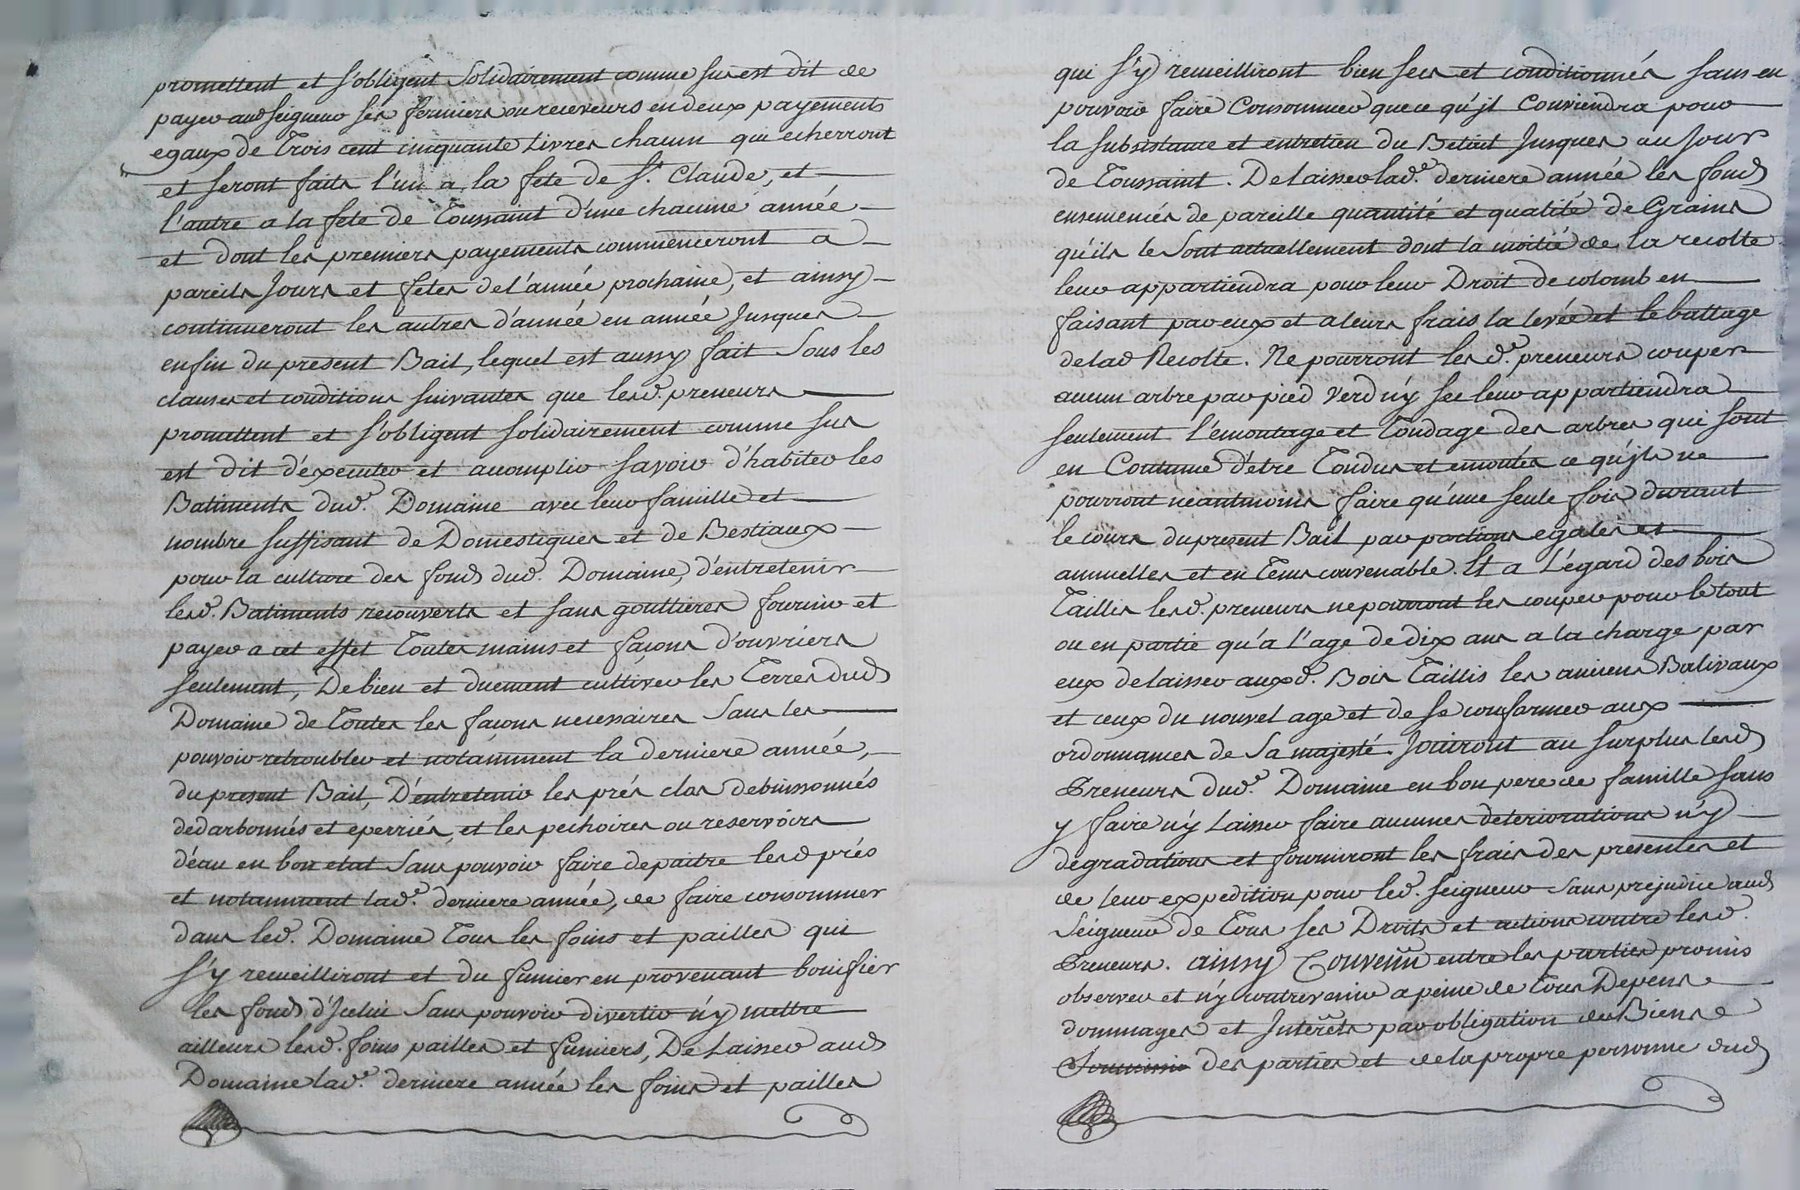 promettent et s'obligent Solidairement comme sus est dit de
payer aud Seigneur ses fermiers ou receveurs en deux payements
egaux de Trois cent cinquante Livres chacun qui echerront
et seront faits l'un a la fete de St. Claude, et
l'autre a la fete de Toussaint d'une chacune année
et dont les premiers payements commenceront a
pareils Jours et fetes de l'année prochaine, et ainsy
continueront les autres d'année en année Jusques
enfin du present Bail, lequel est aussy fait Sous les
clauses et conditions suivantes que lesd. preneurs
promettent et s'obligent solidairement comme sus
est dit d'executer et accomplir savoir d'habiter les
Batiments dud. Domaine avec leur famille et
nombre suffisant de Domestiques et de Bestiaux
pour la culture des fonds dud. Domaine, d'entretenir
lesd. Batiments recouverts et sans gouttieres fournir et
payer a cet effet Toutes mains et façons d'ouvriers
seulement, De bien et duement cultiver les Terres dud
Domaine de Toutes les façons necessaires Sans les
pouvoir retroubler et notamment la derniere année,
du present Bail, D'entretenir les prés clos debuissonnés
dedarbonnés et eperriés, et les pechoires ou reservoirs
d'eau en bon etat Sans pouvoir faire depaitre lesd prés
et notamment lad.e derniere année, de faire consommer
dans led. Domaine Tous les foins et pailles qui
s'y recueilliront et du fumier en provenant bonifier
les fonds d'Icelui Sans pouvoir divertir n'y mettre
ailleurs lesd. foins pailles et fumiers, De Laisser aud
Domaine lad.e derniere année les foins et pailles
qui s'y recueilliront bien secs et conditionnés sans en
pouvoir faire Consommer que ce qu'jl Conviendra pour
la subsistance et entretien du Betail Jusques au Jour
de Toussaint. De laisser lad.e derniere année les fonds
ensemencés de pareille quantité et qualité de Grains
qu'ils le Sont actuellement dont la moitié de la recolte
leur appartiendra pour leur Droit de colomb en
faisant par eux et a leurs frais la levée et le battage
de lad Recolte. Ne pourront les d.s preneurs couper
aucun arbre par pied verd n'y sec leur appartiendra
seulement l'emontage et Tondage des arbres qui sont
en Coutume d'etre Tondus et emontés ce qu'jls ne
pourront neantmoins faire qu'une seule fois durant
le cours du present Bail par portions egales et
annuelles et en Tems convenable. Et a L'égard des bois
Taillis lesd. preneurs ne pourront les couper pour le tout
ou en partie qu'a l'age de dix ans a la charge par
eux de laisser auxd. Bois Taillis les anciens Balivaux
et ceux du nouvel age et de se conformer aux
ordonnances de Sa majesté. Joüiront au surplus lesd
Preneurs dud. Domaine en bon pere de famille sans
y faire n'y Laisser faire aucunes deteriorations n'y
degradations et fourniront les frais des presentes et
de leur expedition pour led. seigneur Sans prejudice aud
Seigneur de Tous ses Droits et actions contre lesd.
Preneurs. ainsy Convenu entre les parties promis
observer et n'y contrevenir a peine de Tous Depens
dommages et Interets par obligation de Biens
des parties et de la propre personne dud